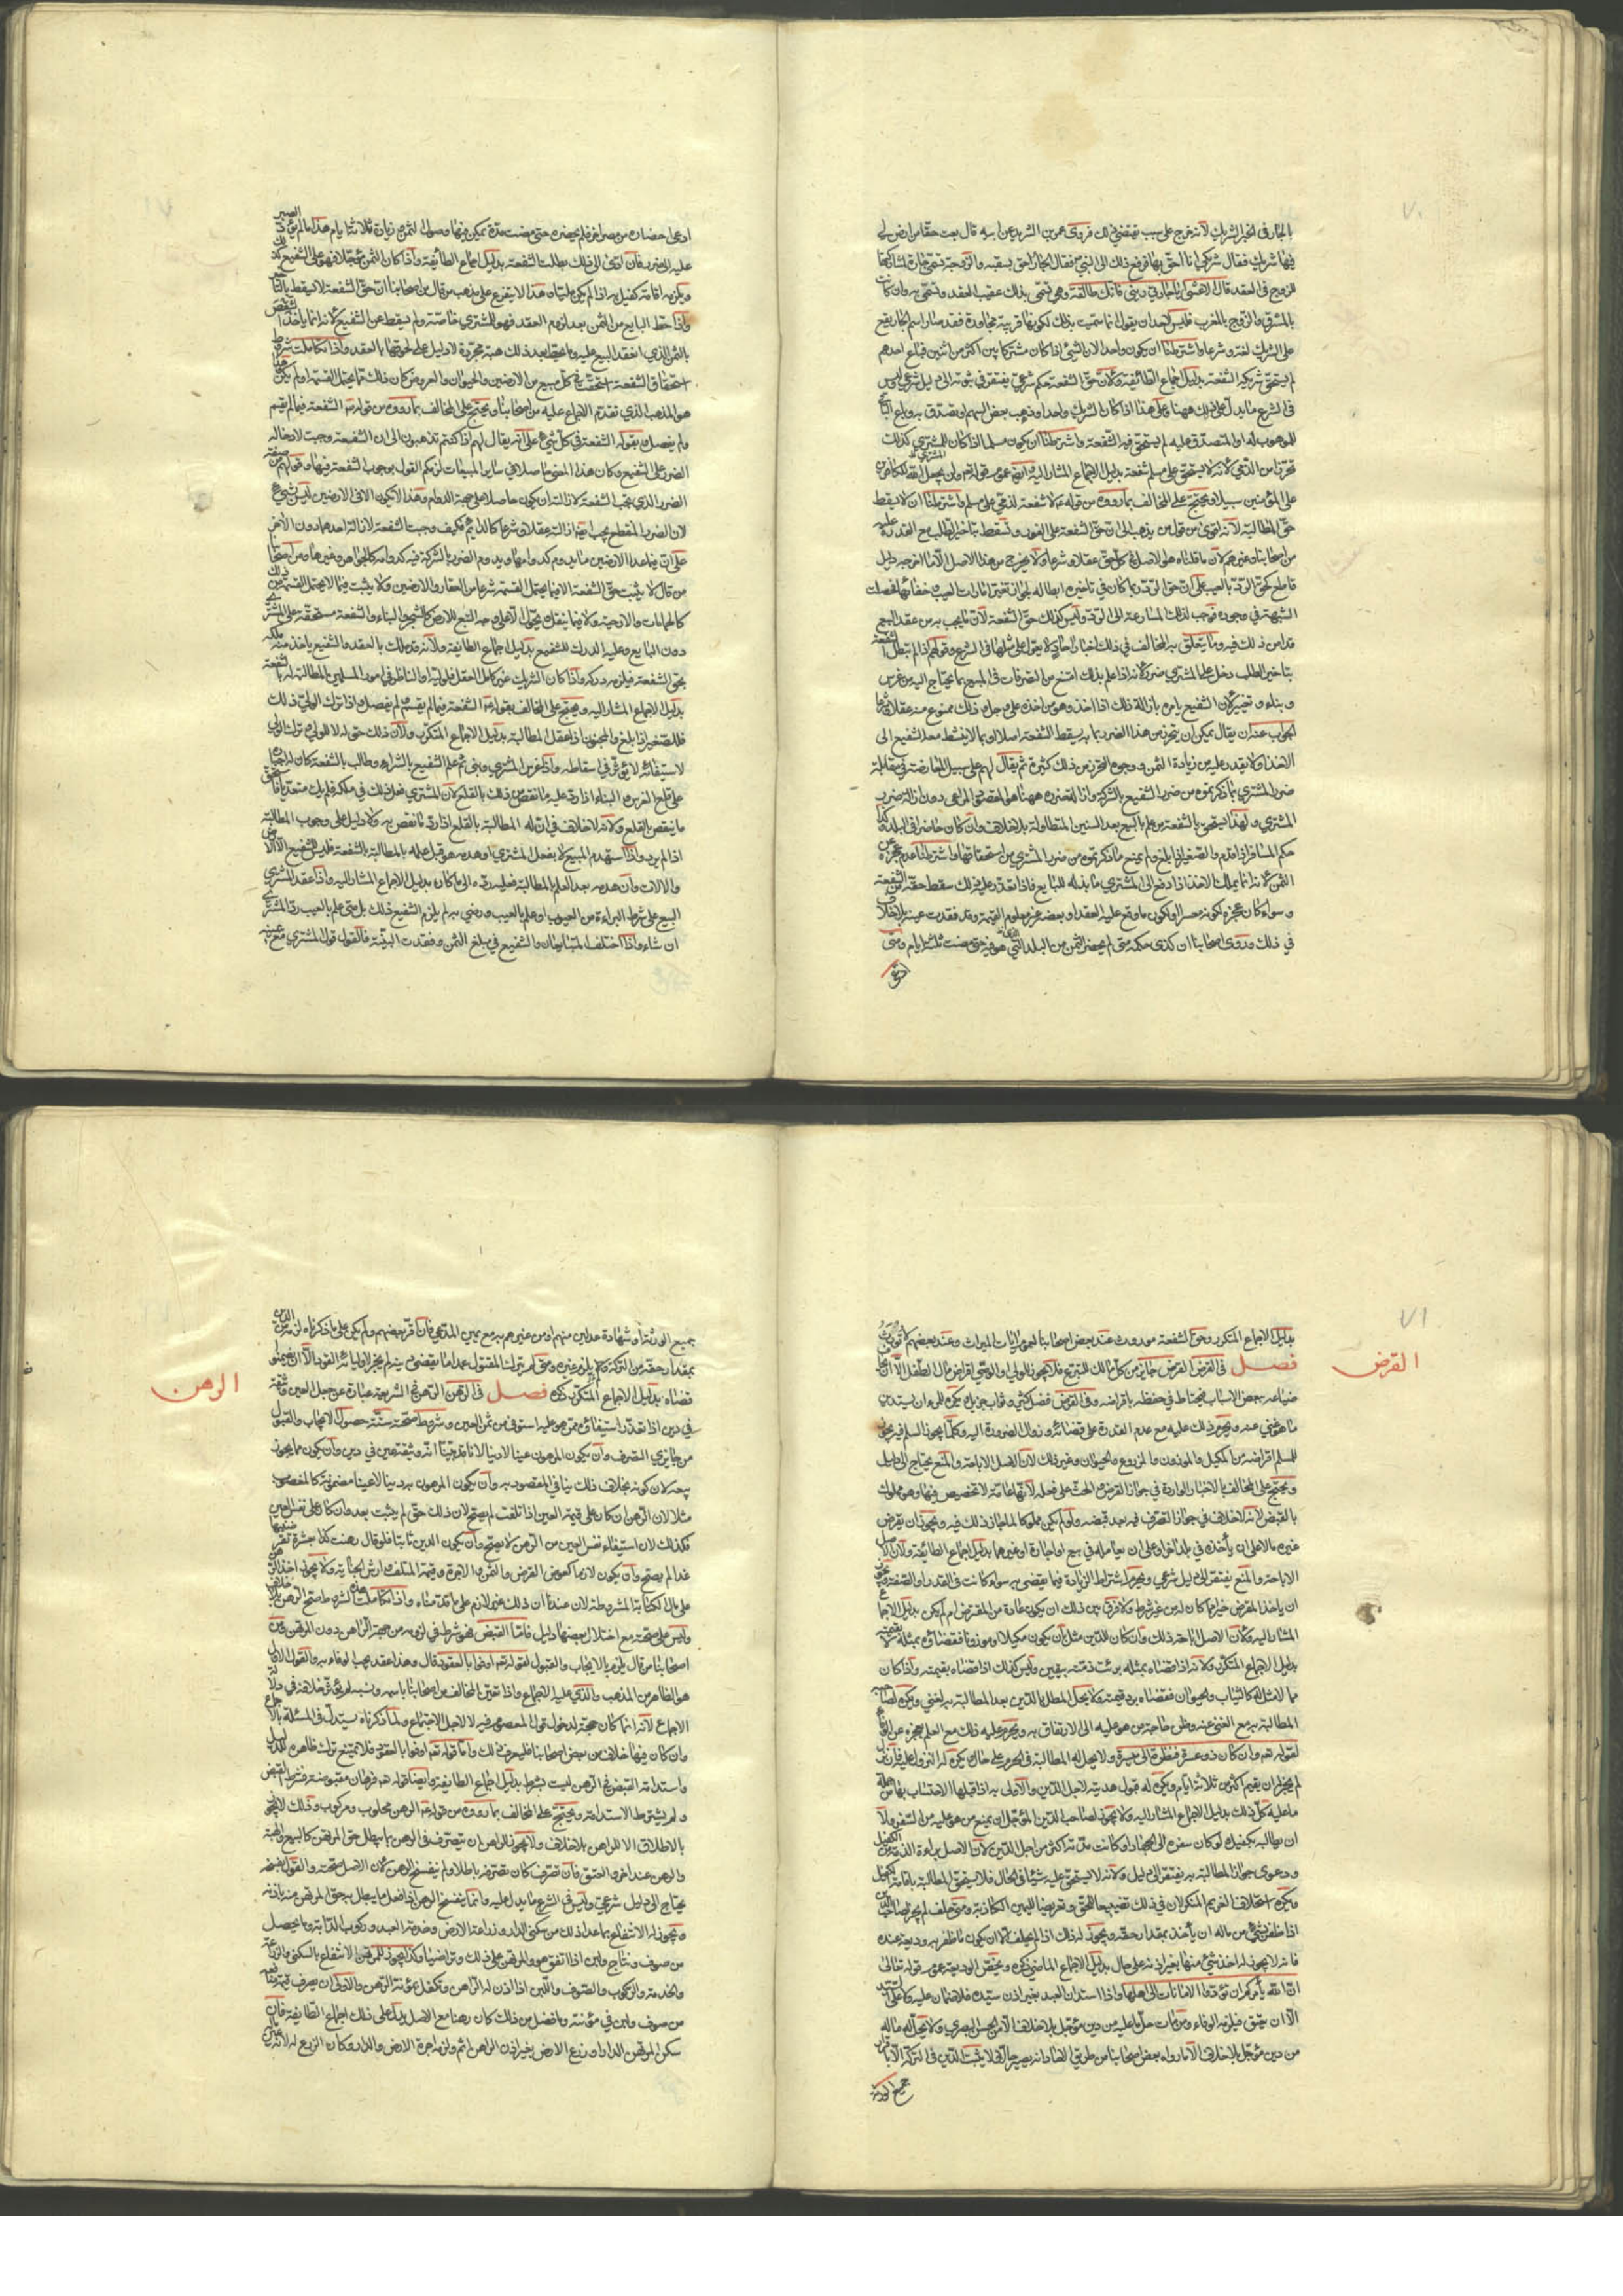 ٧٠
بالجار في الخبر الشريك لأنه خرج على سبب يقتضي ذلك فروى عمرو بن الشريد عن ابيه قال بعت حقا من ارض لي
فيها شريك فقال شريكي انا احق بها فرفع ذلك الى النبي فقال الجار احق بسقبه والزوجة تسمى جارة لمشاركتها
للزوج في العقد قال الاعشى ايا جارتي بيني فانك طالقة وهي تسمى بذلك عقيب العقد وتسمى به وان كانت
بالمشرق والزوج بالمغرب فليس لاحد ان يقول انما سميت بذلك لكونها قريبة مجاورة فقد صار اسم الجار يقع
على الشريك لغة وشرعا واشترطنا ان يكون واحدا لان الشيء اذا كان مشتركا بين اكثر من اثنين فباع احدهم
لم يستحق شريكه الشفعة بدليل اجماع الطائفة ولأن حق الشفعة حكم شرعي يفتقر في ثبوته الى دليل شرعي وليس
في الشرع ما يدل على ذلك ههنا وعلى هذا اذا كان الشريك واحدا ووهب بعض السهم او تصدق به وباع الباقي
للموهوب له او المتصدق عليه لم يستحق فيه الشفعة واشترطنا ان يكون مسلما اذا كان المشتري كذلك
تحرزا من الذمي لأنه لا يستحق على مسلم شفعة بدليل الاجماع المشار اليه وايضا عموم قوله تعالى ولن يجعل الله للكافرين
على المؤمنين سبيلا ويحتج على المخالف بما رووه من قوله ع لا شفعة لذمي على مسلم واشترطنا ان لا يسقط
حق المطالبة لأنه اقوى من قول من يذهب الى ان حق الشفعة على الفور وتسقط بتأخير الطلب مع القدرة عليه
من اصحابنا وغيرهم لأن ما قلناه هو الاصل في كل حق عقلا وشرعا ولا يخرج من هذا الاصل الا ما اخرجه دليل
قاطع كحق الرد بالعيب على ان حق الرد ربما كان في تأخيره ابطال له لجواز تغير امارات العيب وخفائها فحصلت
الشبهة في وجوده فوجب لذلك المسارعة الى الرد وليس كذلك حق الشفعة لأن ما يجب به من عقد البيع
قد امن ذلك فيه وما يتعلق به المخالف في ذلك اخبار آحاد لا يعول على مثلها في الشرع وقولهم اذا لم تبطل الشفعة
بتأخير الطلب دخل على المشتري ضرر لأنه اذا علم بذلك امتنع من التصرفات في المبيع بما يحتاج اليه من غرس
وبناء وتغيير لأن الشفيع يامره بازالة ذلك اذا اخذ وهو من اخذه على وجل ذلك ممنوع منه عقلا وشرعا
الجواب عنه ان يقال يمكن ان يتحرز من هذا الضرر بما به يسقط الشفعة اصلا او بما لا ينشط معه الشفيع الى
الاخذ ولا يقدر عليه من زيادة الثمن ووجوه التحرز من ذلك كثيرة ثم يقال لهم على سبيل المعارضة في مقابلة
ضرر المشتري بما ذكرتموه من ضرر الشفيع بالشركة واذا
المشتري ولهذا استحق بالشفعة من علم بالبيع بعد السنين المتطاولة بلا خلاف وان كان حاضرا في البلد وكذا
حكم المسافر اذا قدم والصغير اذا بلغ ولم يمنع ما ذكرتموه من ضرر المشتري من استحقاقها واشترطنا عدم عجزه عن
الثمن لأنه انما يملك الاخذ اذا دفع الى المشتري ما بذله للبايع فاذا تعذر عليه ذلك سقط حقه من الشفعة
وسواء كان عجزه لكونه معسرا او لكون ما وقع عليه العقد او بعضه غير معلوم القيمة وقد فقدت عينه بلا خلاف
في ذلك وروى اصحابنا ان كذى حكمه متى لم يحضر الثمن من البلد الذي هو فيه حتى مضت ثلثة ايام ومتى
ادعى
ادعى احضاره من مصر آخر فلم يحضره حتى مضت مدة يمكن فيها وصول الثمن وزيادة ثلاثة ايام هذا ما لم يؤد الصبر
عليه الى ضرر فان ادى الى ذلك بطلت الشفعة بدليل اجماع الطائفة واذا كان الثمن مؤجلا فهو على الشفيع كذلك
ويلزمه اقامة كفيل به اذا لم يكن مليا وان هذا الا يتفرع على مذهب من قال من اصحابنا ان حق الشفعة لا يسقط بالتأخير
واذا حط البايع من الثمن بعد لزوم العقد فهو للمشتري خاصة ولم يسقط عن الشفيع لأنه انما يأخذ الشقص
بالثمن الذي انعقد البيع عليه وما يحط بعد ذلك هبة مجردة لا دليل على لحوقها بالعقد واذا تكاملت شروط
استحقاق الشفعة استحقت في كل مبيع من الارضين والحيوان والعروض كان ذلك مما يحتمل القسمة او لم يكن هذا
هو المذهب الذي تقدم الاجماع عليه من اصحابنا ويحتج على المخالف بما رووه من قوله ع الشفعة فيما لم يقسم
ولم يفصل وبقوله الشفعة في كل شيء على انه يقال لهم اذا كنتم تذهبون الى ان الشفعة وجبت لازالة
الضرر عن الشفيع وكان هذا المعنى حاصلا في ساير المبيعات لزمكم القول بوجوب الشفعة فيها وقولهم من صفة
الضرر الذي تجب الشفعة لازالته ان يكون حاصلا على جهة الدوام وهذا لا يكون الا في الارضين ليس بشيء
لان الضرر المنقطع يجب ايضا ازالته عقلا وشرعا كالدائم فكيف وجبت الشفعة لازالة احدهما دون الآخر
على ان فيما عدا الارضين ما يدوم كدوامها ويدوم الضرر بالشركة فيه كدوامه كالجواهر وغيرها ومن اصحابنا
من قال لا يثبت حق الشفعة الا فيما يحتمل القسمة شرعا من العقار والارضين ولا يثبت فيما لا يحتمل القسمة من ذلك
كالحمامات والارحية ولا فيما ينقل ويحول الا على وجه التبع للارض كالشجر والبناء والشفعة مستحقة على المشتري
دون البايع وعليه الدرك للشفيع بدليل اجماع الطايفة ولأنه قد ملك بالعقد والشفيع يأخذ منه ملكه
بحق الشفعة فيلزمه دركه واذا كان الشريك غير كامل العقل فلوليه او الناظر في امور المسلمين المطالبة له بالشفعة
بدليل الاجماع المشار اليه ويحتج على المخالف بقوله ع الشفعة فيما لم يقسم ولم يفصل واذا ترك الولي ذلك
فللصغير اذا بلغ والمجنون اذا عقل المطالبة بدليل الاجماع المتكرر ولأن ذلك حق له لا للولي وترك الولي
لاستيفائه لا يؤثر في اسقاطه واذا غرس المشتري وبنى ثم علم الشفيع بالشراء وطالب بالشفعة كان له اجباره
على قلع الغرس والبناء اذا رد عليه ما نقص من ذلك بالقلع لأن المشتري فعل ذلك في ملكه فلم يك متعديا فاستحق
ما ينقص بالقلع ولأنه لا خلاف في ان له المطالبة بالقلع اذا رد ما نقص به ولا دليل على وجوب المطالبة
اذا لم يرد واذا استهدم المبيع لا بفعل المشتري او هدمه هو قبل علمه بالمطالبة بالشفعة فليس للشفيع الا الارض
والآلات وان هدمه بعد العلم بالمطالبة فعليه رده الى ما كان بدليل الاجماع المشار اليه واذا عقد المشتري
البيع على شرط البراءة من العيوب او علم بالعيب ورضي به لم يلزم الشفيع ذلك بل متى علم بالعيب رد على المشتري
ان شاء واذا اختلف المتبايعان والشفيع في مبلغ الثمن وفقدت البينة فالقول قول المشتري مع يمينه
٧١
القرض
بدليل الاجماع المتكرر وحق الشفعة موروث عند بعض اصحابنا لعموم آيات الميراث وعند بعضهم لا يورث
فصل في القرض القرض جايز من كل مالك للتبرع فلا يجوز للولي والوصي اقراض مال الطفل الا ان يخاف
ضياعه ببعض الاسباب فيحتاط في حفظه باقراضه وفي القرض فضل كثير وثواب جزيل ويكره للمرء ان يستدين
ما هو غني عنه ويحرم ذلك عليه مع عدم القدرة على قضائه وزوال الضرورة اليه وكلما يجوز السلم فيه يجوز
للمسلم اقراضه من المكيل والموزون والمزروع والحيوان وغير ذلك لأن الاصل الاباحة والمنع يحتاج الى دليل
ويحتج على المخالف بالاخبار الواردة في جواز القرض والحث على فعله لأنها عامة لا تخصيص فيها وهو مملوك
بالقبض لأنه لا خلاف في جواز التصرف فيه بعد قبضه ولو لم يكن مملوكا لما جاز ذلك فيه ويجوز ان يقرض
غيره مالا على ان يأخذه في بلد آخر او على ان يعامله في بيع او اجارة او غيرهما بدليل اجماع الطائفة ولأن الاصل
الاباحة والمنع يفتقر الى دليل شرعي ويحرم اشتراط الزيادة فيما يقضى به سواء كانت في القدر او الصفة ويجوز
ان يأخذ المقرض خيرا مما كان له من غير شرط ولا فرق بين ذلك ان يكون عادة من المقترض او لم يكن بدليل الاجماع
المشار اليه ولأن الاصل اباحة ذلك وان كان للدين مثل بأن يكون مكيلا او موزونا فقضاؤه بمثله لا بقيمته
بدليل الاجماع المتكرر ولأنه اذا قضاه بمثله برئت ذمته بيقين وليس كذلك اذا قضاه بقيمته واذا كان
مما لا مثل له كالثياب والحيوان فقضاؤه برد قيمته ولا يحل المطل بالدين بعد المطالبة به لغني ويكره لصاحبه
المطالبة به مع الغنى عنه وظن حاجة من هو عليه الى الارتفاق به ويحرم عليه ذلك مع العلم بعجزه عن الوفاء
لقوله تعالى وان كان ذو عسرة فنظرة الى ميسرة ولا يحل له المطالبة في الحرم على حال ويكره له النزول عليه فان نزل
لم يجز له ان يقيم اكثر من ثلاثة ايام ويكره له قبول هديته لاجل الدين والاولى به اذا قبلها الاحتساب بها من جملة
ما عليه كل ذلك بدليل الاجماع المشار اليه ولا يجوز لصاحب الدين المؤجل ان يمنع من هو عليه من السفر ولا
ان يطالبه بكفيل ولو كان سفره الى الجهاد او كانت مدته اكثر من اجل الدين لأن الاصل براءة الذمة من الكفيل
ودعوى جواز المطالبة به يفتقر الى دليل ولأنه لا يستحق عليه شيئا في الحال فلا يستحق المطالبة باقامة كفيل
ويكره استحلاف الغريم المنكر لان في ذلك تضييعا للحق وتعريضا لليمين الكاذبة ومتى حلف لم يجز لصاحب الدين
اذا ظفر بشيء من ماله ان يأخذ بمقدار حقه ويجوز له ذلك اذا لم يحلف الا ان يكون ما ظفر به وديعة عنده
فانه لا يجوز له اخذ شيء منها بغير اذنه على حال بدليل الاجماع الماضي ذكره ويخص الوديعة عموم قوله تعالى
ان الله يأمركم ان تؤدوا الامانات الى اهلها واذا استدان العبد بغير اذن سيده فلا ضمان عليه ولا على السيد
الا ان يعتق فيلزمه الوفاء ومن مات حل ما عليه من دين مؤجل بلا خلاف الا من الحسن البصري ولا يحل له ماله
من دين مؤجل بلا خلاف الا ما رواه بعض اصحابنا من طريق الآحاد انه يصير حالا ولا يثبت الدين في التركة الا باقرار
جميع الورثة
الرهن
جميع الورثة او شهادة عدلين منهم او من غيرهم به مع يمين المدعي فان اقر بعضهم ولم يكن على ما ذكرناه لزمه من الدين
بمقدار حقه من التركة ولم يلزم غيره ومتى لم يترك المقتول عمدا ما يقضى دينه لم يجز لاوليائه القود الا ان يضمنوا
قضاه بدليل الاجماع المتكرر ذكره فصل في الرهن الرهن في الشريعة عبارة عن جعل العين وثيقة
في دين اذا تعذر استيفاؤه ممن هو عليه استوفي من ثمن العين وشروط صحته ستة حصول الايجاب والقبول
من جايزي التصرف وأن يكون المرهون عينا لا دينا لانا قد بينا انه وثيقة عين في دين وأن يكون مما يجوز
بيعه لان كونه بخلاف ذلك ينافي المقصود به وأن يكون المرهون به دينا لا عينا مضمونة كالمغصوب
مثلا لان الرهن ان كان على قيمة العين اذا تلفت لم يصح لان ذلك حق لم يثبت بعد وان كان على نفس العين
فكذلك لان استيفاء نفس العين من الرهن لا يصح وأن يكون الدين ثابتا فلو قال رهنت كذا بعشرة تقرضنيها
غدا لم يصح وأن يكون لازما كعوض القرض والثمن والاجرة وقيمة المتلف وارش الجناية ولا يجوز اخذ الرهن
على مال الكتابة المشروطة لان عندنا ان ذلك غير لازم على ما قدمناه واذا تكاملت هذه الشروط صح الرهن بلا خلاف
وليس على صحته مع اختلال بعضها دليل فأما القبض فهو شرط في لزومه من جهة الراهن دون المرتهن ومن
اصحابنا من قال يلزم بالايجاب والقبول لقوله تعالى اوفوا بالعقود قال وهذا عقد يجب الوفاء به والقول الاول
هو الظاهر من المذهب والذي عليه الاجماع واذا تعين المخالف من اصحابنا باسمه ونسبه لم يؤثر خلافه في دلالة
الاجماع لأنه انما كان حجة لدخول قول المعصوم فيه لا لاجل الاجتماع ولما ذكرناه يستدل في المسئلة بالاجماع
وان كان فيها خلاف من بعض اصحابنا فليعرف ذلك وأما قوله تعالى اوفوا بالعقود فلا يمتنع ترك ظاهره للدليل
واستدامة القبض في الرهن ليست بشرط بدليل اجماع الطايفة وايضا قوله تعالى فرهان مقبوضة فشرط القبض
ولم يشترط الاستدامة ويحتج على المخالف بما رووه من قوله ع الرهن محلوب ومركوب وذلك لا يجوز
بالاطلاق الا للراهن بلا خلاف ولا يجوز للراهن ان يتصرف في الرهن بما يبطل حق المرتهن كالبيع والهبة
والرهن عند آخر والعتق فان تصرف كان تصرفه باطلا ولم ينفسخ الرهن لأن الاصل صحته والقول بفسخه
يحتاج الى دليل شرعي وليس في الشرع ما يدل عليه وانما ينفسخ الرهن اذا فعل ما يبطل به حق المرتهن منه باذنه
ويجوز له الانتفاع بما عدا ذلك من سكنى الدار وزراعة الارض وخدمة العبد وركوب الدابة وما يحصل
من صوف ونتاج ولبن اذا اتفق هو والمرتهن على ذلك وتراضيا وكذا يجوز للمرتهن الانتفاع بالسكنى والزراعة
والخدمة والركوب والصوف واللبن اذا اذن له الراهن وتكفل بمؤنة الرهن والاولى ان يصرف قيمة منافعه
من صوف ولبن في مؤنته وما فضل من ذلك كان رهنا مع الاصل بدليل على ذلك اجماع الطايفة فان
سكن المرتهن الدار او زرع الارض بغير اذن الراهن اثم ولزمه اجرة الارض والدار وكان الزرع له لانه عين